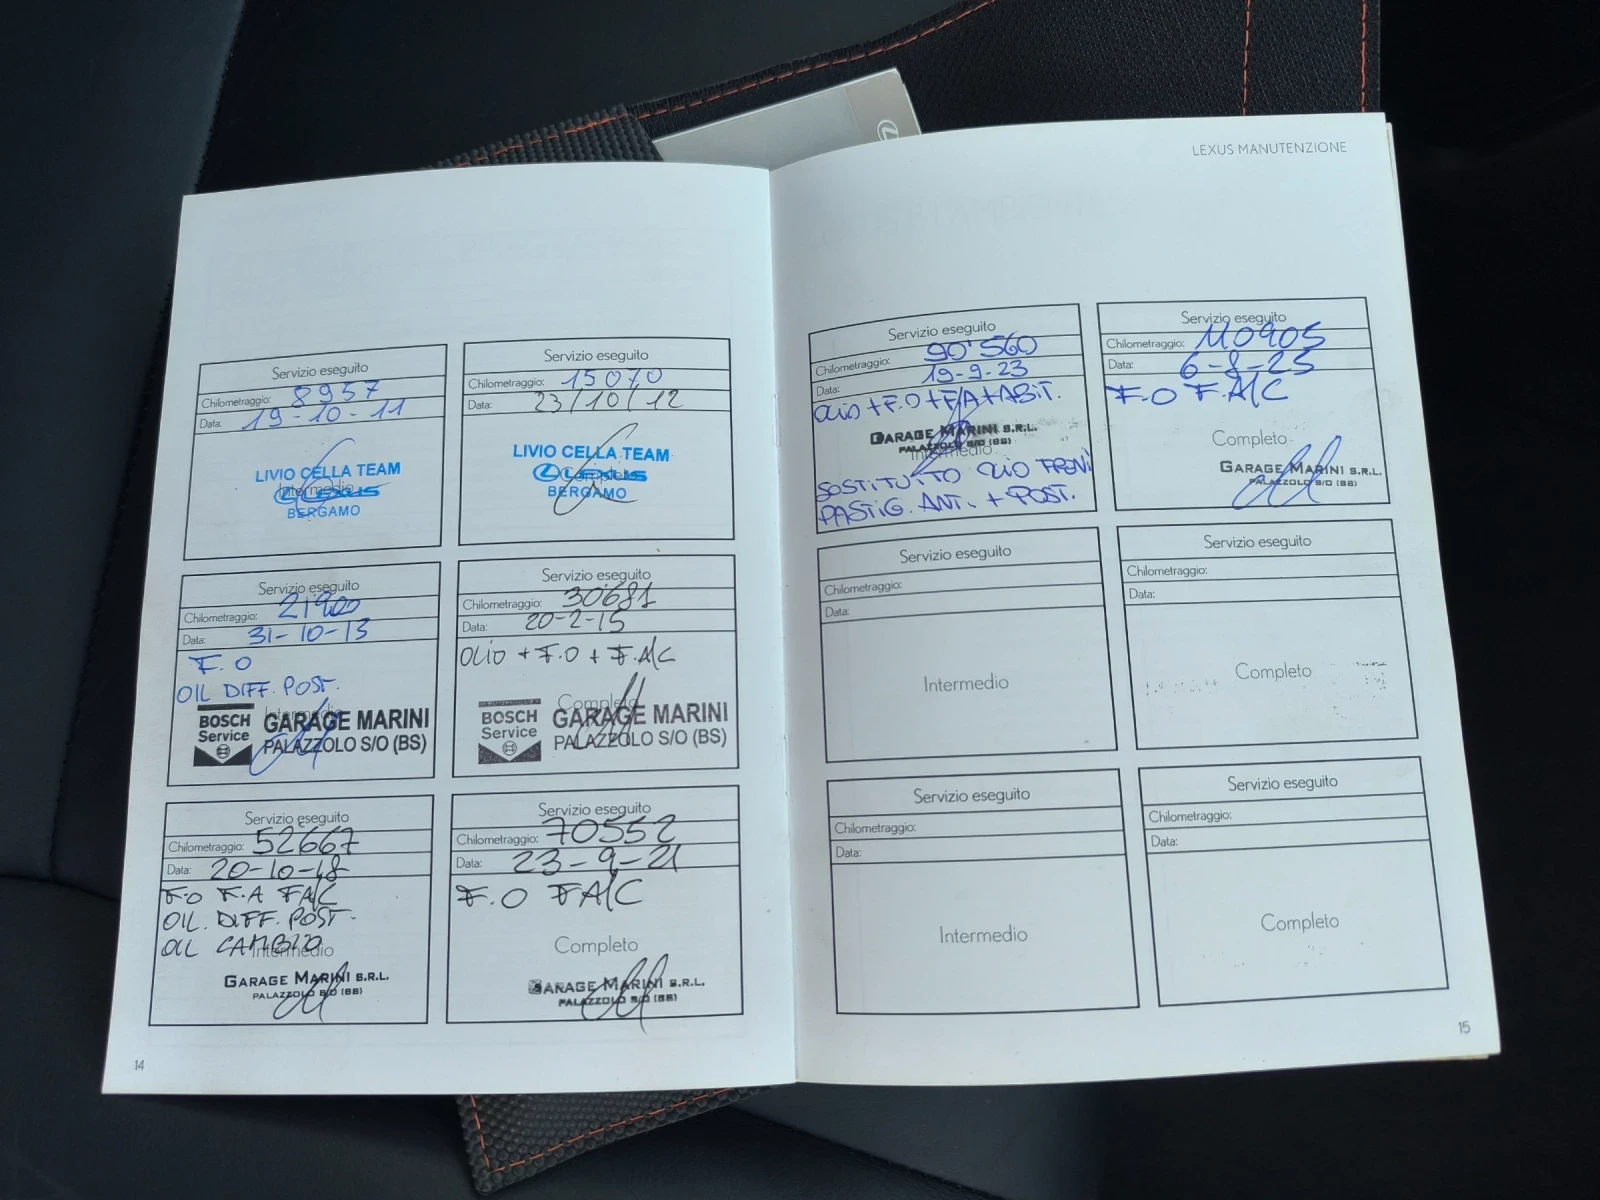 LEXUS MANUTENZIONE
Servizio eseguito
Chilometraggio: 8957
Data: 19-10-11
Intermedio
LIVIO CELLA TEAM
LEXUS
BERGAMO
Servizio eseguito
Chilometraggio: 15070
Data: 23/10/12
Completo
LIVIO CELLA TEAM
LEXUS
BERGAMO
Servizio eseguito
Chilometraggio: 21900
Data: 31-10-13
F.O
OIL DIFF. POST.
Intermedio
BOSCH
Service
GARAGE MARINI
PALAZZOLO S/O (BS)
Servizio eseguito
Chilometraggio: 30681
Data: 20-2-15
OLIO + F.O + F.A/C
Completo
BOSCH
Service
GARAGE MARINI
PALAZZOLO S/O (BS)
Servizio eseguito
Chilometraggio: 52667
Data: 20-10-18
F.O F.A FA/C
OIL. DIFF. POST.
OIL CAMBIO
Intermedio
GARAGE MARINI S.R.L.
PALAZZOLO S/O (BS)
Servizio eseguito
Chilometraggio: 70552
Data: 23-9-21
F.O FA/C
Completo
GARAGE MARINI S.R.L.
PALAZZOLO S/O (BS)
14
Servizio eseguito
Chilometraggio: 90'560
Data: 19-9-23
OLIO + F.O + F/A + ABIT.
GARAGE MARINI S.R.L.
PALAZZOLO S/O (BS)
Intermedio
SOSTITUITO OLIO FRENI
PASTIG. ANT. + POST.
Servizio eseguito
Chilometraggio: 110905
Data: 6-8-25
F.O F.A/C
Completo
GARAGE MARINI S.R.L.
PALAZZOLO S/O (BS)
Servizio eseguito
Chilometraggio:
Data:
Intermedio
Servizio eseguito
Chilometraggio:
Data:
Completo
Servizio eseguito
Chilometraggio:
Data:
Intermedio
Servizio eseguito
Chilometraggio:
Data:
Completo
15